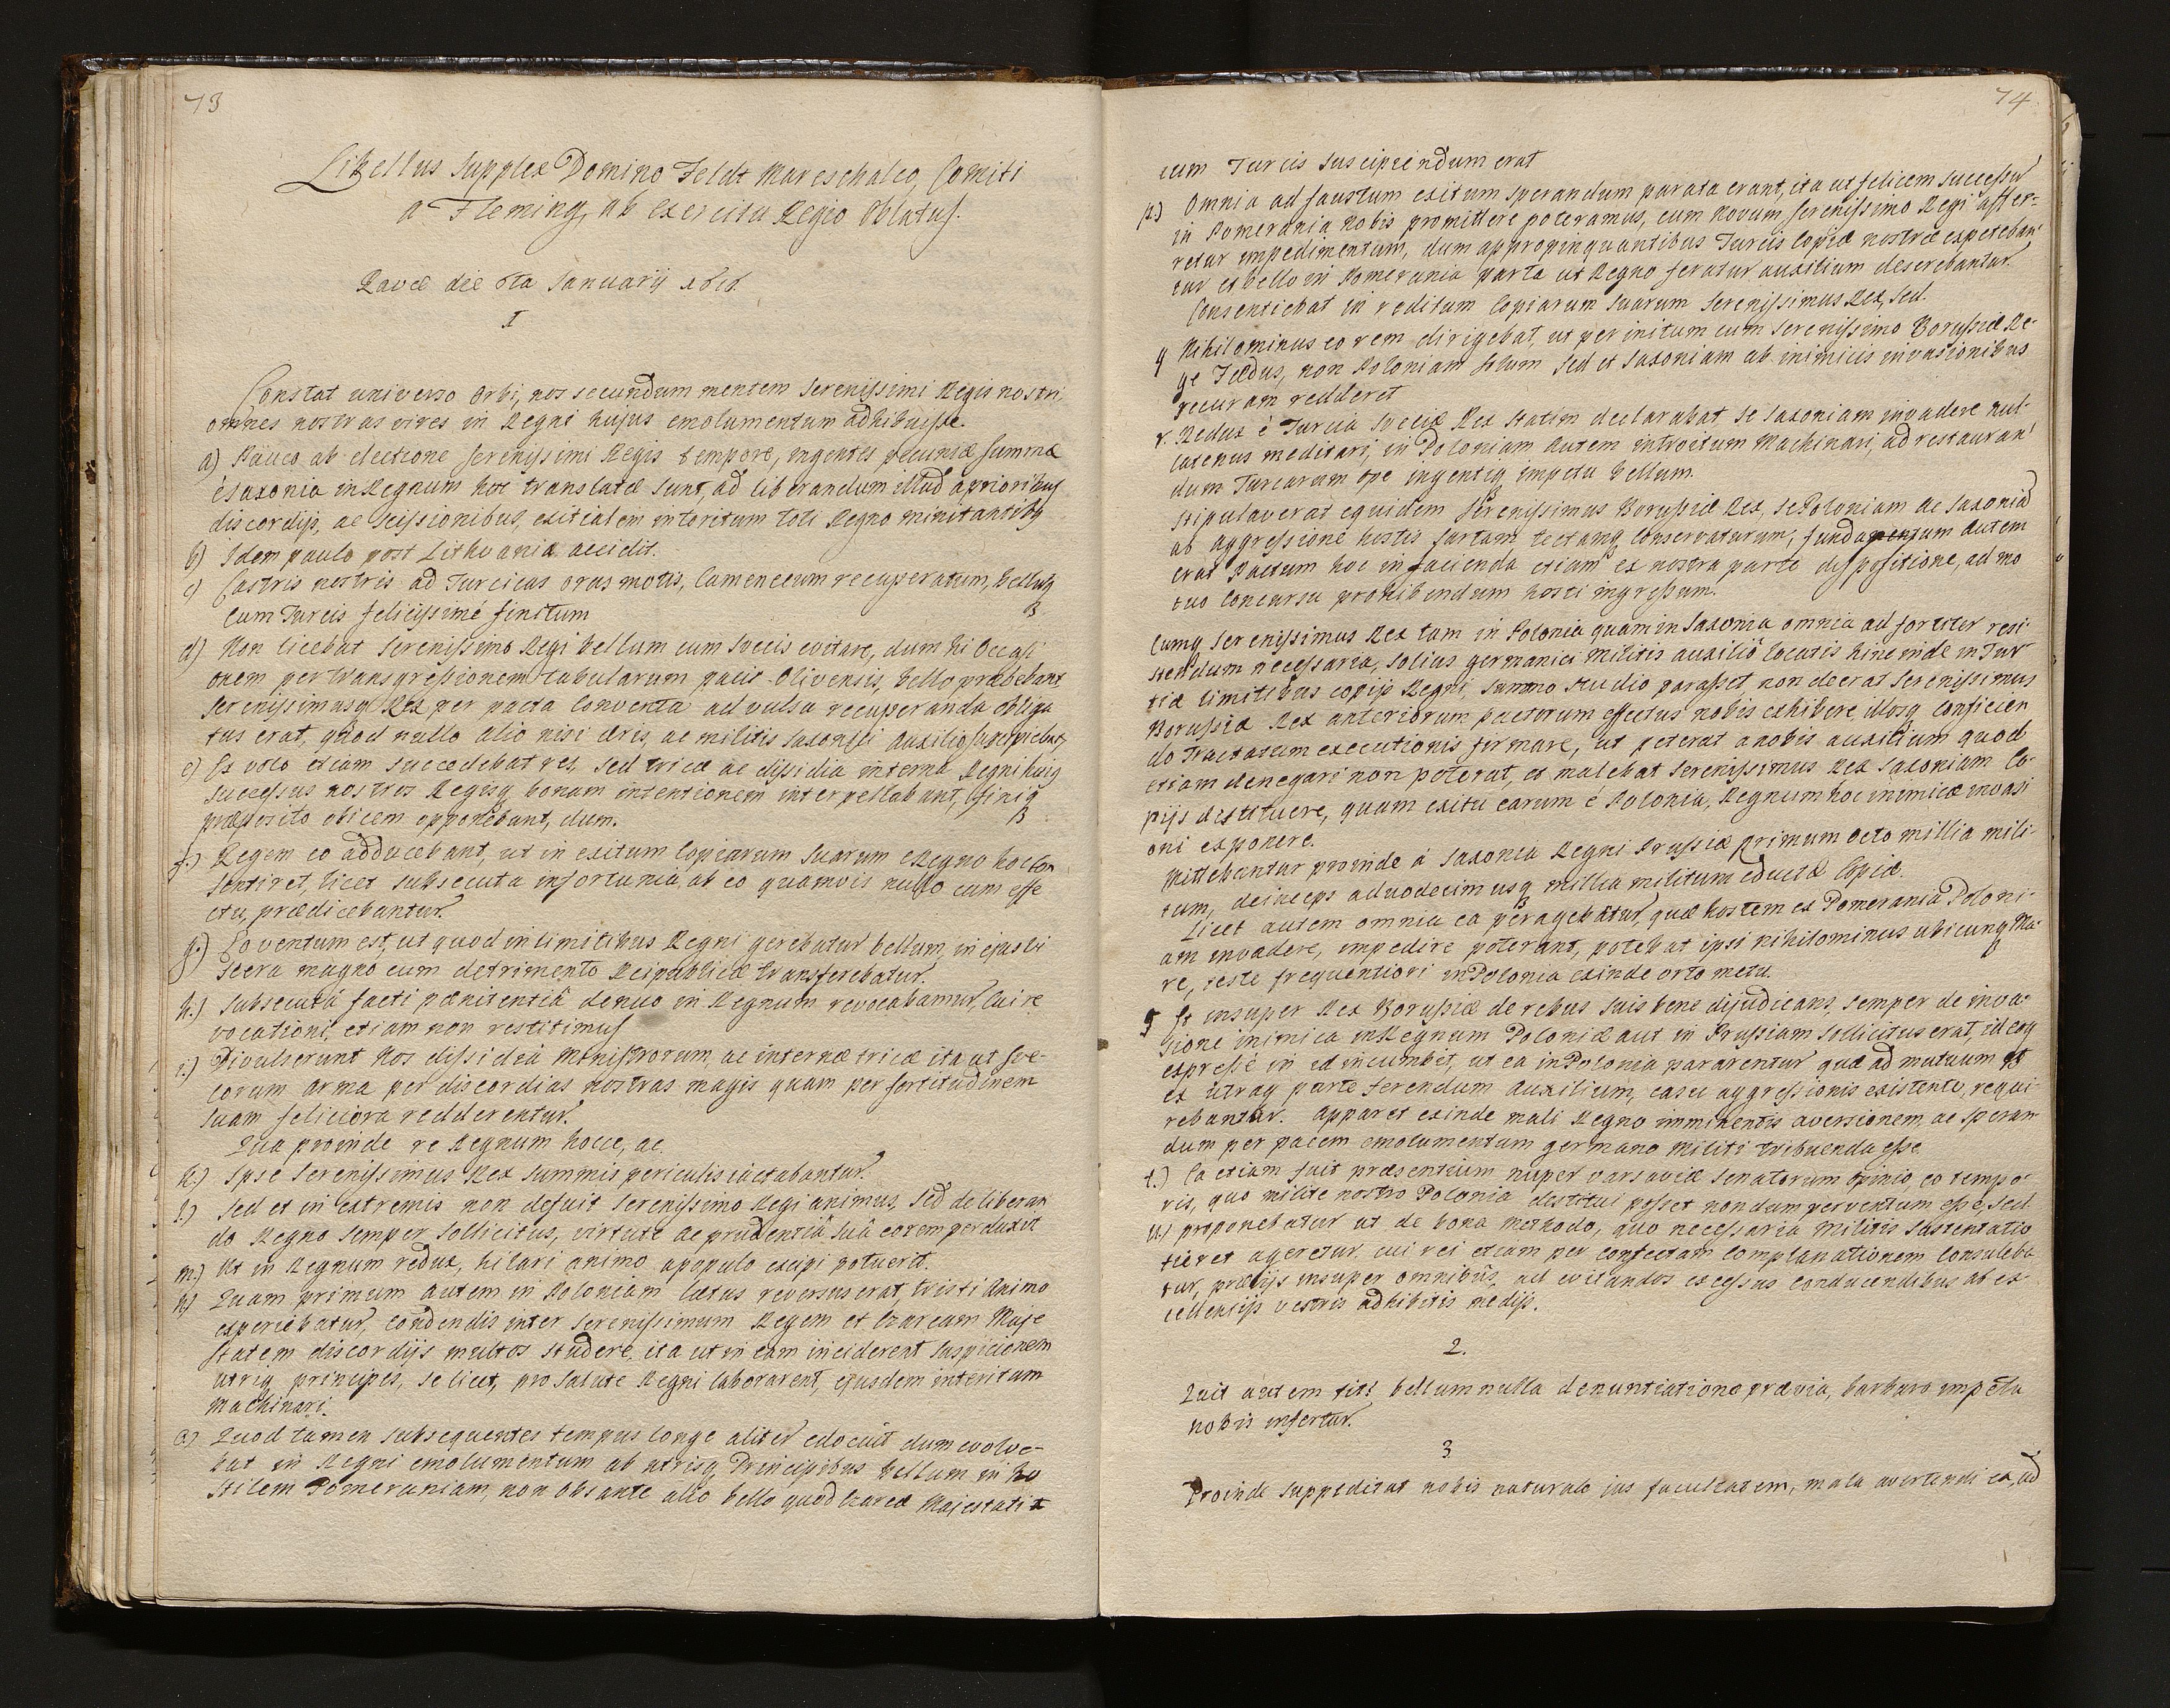 73
Libellus Supplex Domino Feldt Mareschalco, Comiti
a Fleming, ab exercitu Regio Oblatus.
Ravæ die 6ta Januarij
I
Constat universo Orbi, nos secundum mentem Serenissimi Regis nostri,
omnes nostras vires in Regni hujus emolumentum adhibuisse.
a) Pauco ab electione Serenissimi Regis tempore, ingentes pecuniæ summæ
è Saxonia in Regnum hoc translatæ sunt, ad liberandum illud a prioribus
discordijs, ac scissionibus, exitialem interitum toti Regno minitantibq
b) Idem paulo post Lithvaniæ accidit.
c) Castris nostris ad Turcicas oras motis, Camenecum recuperatum, bellumq
cum Turcis felicissimé finitum
d) Non licebat Serenissimo Regi bellum cum Svecis evitare, dum hi Occasi
onem per transgressionem tabularum pacis Olivensis, bello præbebant,
Serenissimusq Rex per pacta Conventa ad vulsa recuperanda obliga
tus erat, quod nullo alio nisi æris, ac militis Saxonici auxilio suscipiebat,
e) Ex voto etiam succedebat res, sed tricæ ac dissidia interna Regni hujq
successus nostros Regisq bonam intentionem interpellabant, finiq
præposito obicem opponebant, dum.
f.) Regem eo adducebant, ut in exitum Copiarum Suarum e Regno hoc Con
sentiret, licet subsecuta infortunia, ab eo quamvis nullo cum effe
ctu, prædicebantur.
g.) Eo ventum est, ut quod in limitibus Regni gerebatur bellum, in ejus vi
scera magno cum detrimento Reipublicæ transferebatur.
h.) Subsecutâ facti pœnitentiâ denuo in Regnum revocabamur, Cui re
vocationi, etiam non restitimus
i.) Divulserunt Nos dissidia Ministrorum, ac internæ tricæ ita ut Sve-
corum arma per discordias nostras magis quam per fortitudinem
suam feliciora redderentur.
Qua proinde re Regnum hocce, ac.
k.) Ipse Serenissimus Rex summis periculis iactabantur.
l.) Sed et in extremis non defuit Serenissimo Regi animus, sed de liberan
do Regno semper sollicitus, virtute ac prudentiâ suâ eo rem perduxit
m.) Ut in Regnum redux, hilari animo apopulo excipi potuerit.
n) Quam primum autem in Poloniam lætus reversus erat, tristi Animo
experiebatur, condendis inter Serenissimum Regem et Czaream Maje
statem discordijs multos studere, ita ut in eam inciderent suspicionem
utriq principes, se licet, pro Salute Regni laborarent, ejusdem interitum
machinari.
o.) Quod tamen subsequentes tempus longe aliter edocuit dum evolve-
bat in Regni emolumentum ab utrisq Principibus bellum in ho
stilem Pomeraniam, non obsante alio bello quod Czareæ Majestati
74
cum Turcis suscipiendum erat
p.) Omnia ad faustum exitum sperandum parata erant, ita ut felicem successu
in Pomerania nobis promittere poteramus, cum novum Serenissimo Regi affer-
retur impedimentum, dum appropinquantibus Turcis Copiæ nostræ expeteban
tur et bello in Pomerania parta ut Regno feratur auxilium deserebantur.
Consentiebat in reditum Copiarum Suarum Serenissimus Rex, sed.
q Nihilominus eo rem dirigebat, ut per initum cum Serenissimo Borussiæ Re-
ge Fœdus, non Poloniam solum sed et Saxoniam ab inimicis invasionibus
securam redderet
r. Redux è Turcia Sveciæ Rex statim declarabat, se Saxoniam invadere nul-
latenus meditari, in Poloniam autem introitum Machinari, ad restauran
dum Turcarum ope ingentiq impetu bellum.
Stipulaverat equidem Serenissimus Borussiæ Rex, se Poloniam ac Saxoniã
ab aggressione hostis sartam tectamq Conservaturum, fundamentum autem
erat Pactum hoc in facienda etiam ex nostra parte dispositione, ad mo
tuo Concursu prohibendum hosti ingressum.
Cumq Serenissimus Rex tam in Polonia quam in Saxonia omnia ad fortiter resi-
stendum necessaria, solius germanici Militis auxiliô locatis hinc inde in Tur
ciæ limitibus copijs Regni, summo studio parasset, non deerat Serenissimus
Borussiæ Rex anteriorum pactorum effectus nobis exhibere, illosq Conficien
do Tractatum executionis firmare, ut peterat a nobis auxilium quod
etiam denegari non poterat, et malebat Serenissimus Rex Saxoniam Co-
pijs destituere, quam exitu earum è Polonia, Regnum hoc inimicæ invasi
oni exponere.
Mittebantur proinde à Saxonia Regni Prussiæ primum octo millia mili-
tum, deinceps ad vodecim usq millia militum eductæ Copiæ.
Licet autem omnia ea peragebatur, quæ hostem ex Pomerania Poloni-
am invadere, impedire poterant, potebat ipsi nihilominus ubicunq Ma-
re, teste frequentiori in Polonia exinde orto metu.
s Et insuper Rex Borussiæ de rebus suis bene dijudicans, semper de inva-
sione inimica in Regnum Poloniæ aut in Prussiam sollicitus erat, ideoq
expressé in id incumbit, ut ea in Polonia pararentur quæ ad mutuum
ex utraq parte ferendum Auxilium, casu aggressionis existente, requi-
rebantur. Apparet exinde mali Regno imminentis aversionem, ac speran
dum per pacem emolumentum germano Militi tribuenda esse
t.) Ea etiam fuit præsentium nuper Varsaviæ Senatorum opinio, eo tempo-
ris, quo milite nostro Polonia destitui posset nondum perventum esse, sed
u) proponebatur ut de bona methodo, quo necessaria Militis sustentatio
fieret ageretur, cui rei etiam per confectam Complanationem Consuleba
tur, prævijs insuper omnibus, ad evitandos excessus Conducendibus ab ex
cellentijs vestris adhibitis medijs.
2.
Quit autem fit? bellum nulla denuntiatione prævia, barbaro impetu
nobis infertur.
3
Proinde suppeditat nobis naturale ius facultatem, mala avertendi ea, ad